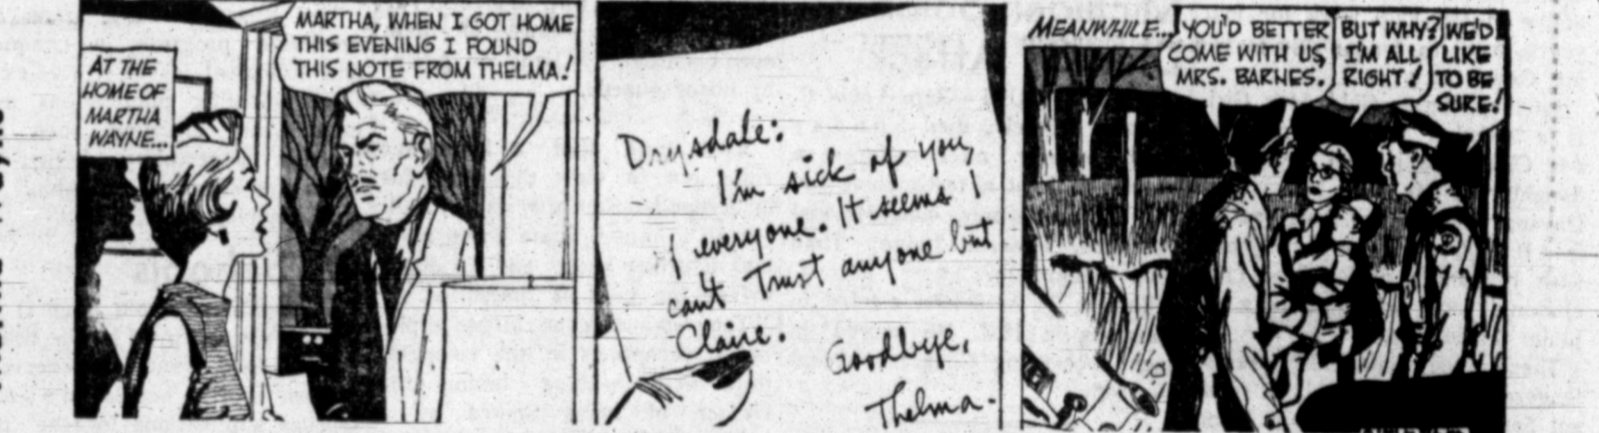 AT THE
HOME OF
MARTHA
WAYNE...
MARTHA, WHEN I GOT HOME
THIS EVENING I FOUND
THIS NOTE FROM THELMA!
Drysdale:
I'm sick of you,
everyone. It seems I
can't trust anyone but
Claire.
Goodbye,
Thelma.
MEANWHILE...
YOU'D BETTER
COME WITH US,
MRS. BARNES.
BUT WHY?
I'M ALL
RIGHT!
WE'D
LIKE
TO BE
SURE!